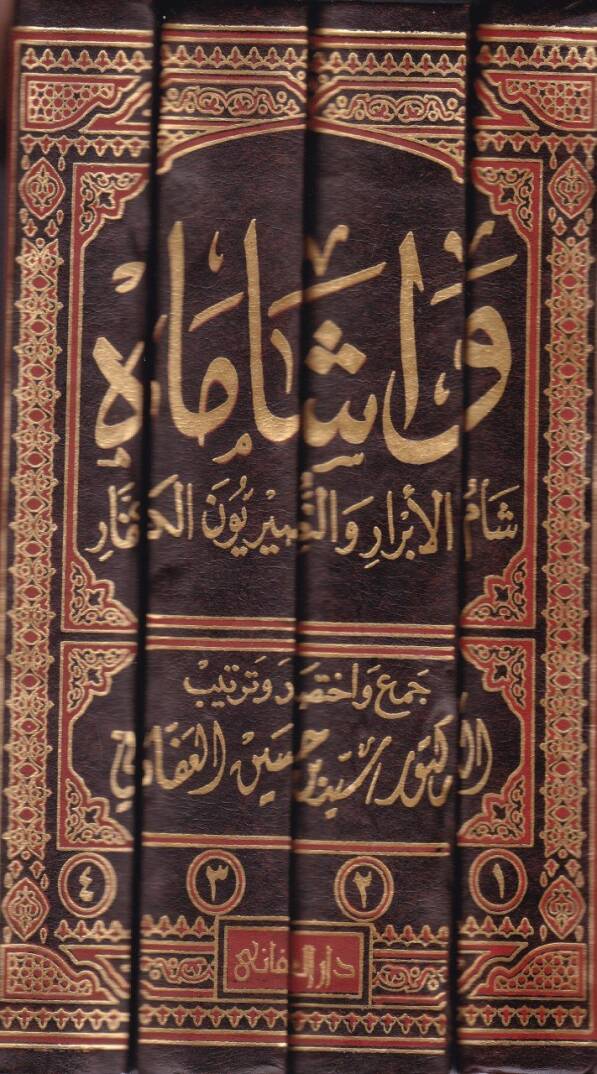 وَاشَامَاه
شَامُ الأَبْرارِ وَالنُّصَيْرِيُّونَ الكُفَّار
جَمع وَاختصَار وَترتيبْ
الدكتور سَيّد حسَين العَفّاني
١ ٢ ٣ ٤
دار العفانى